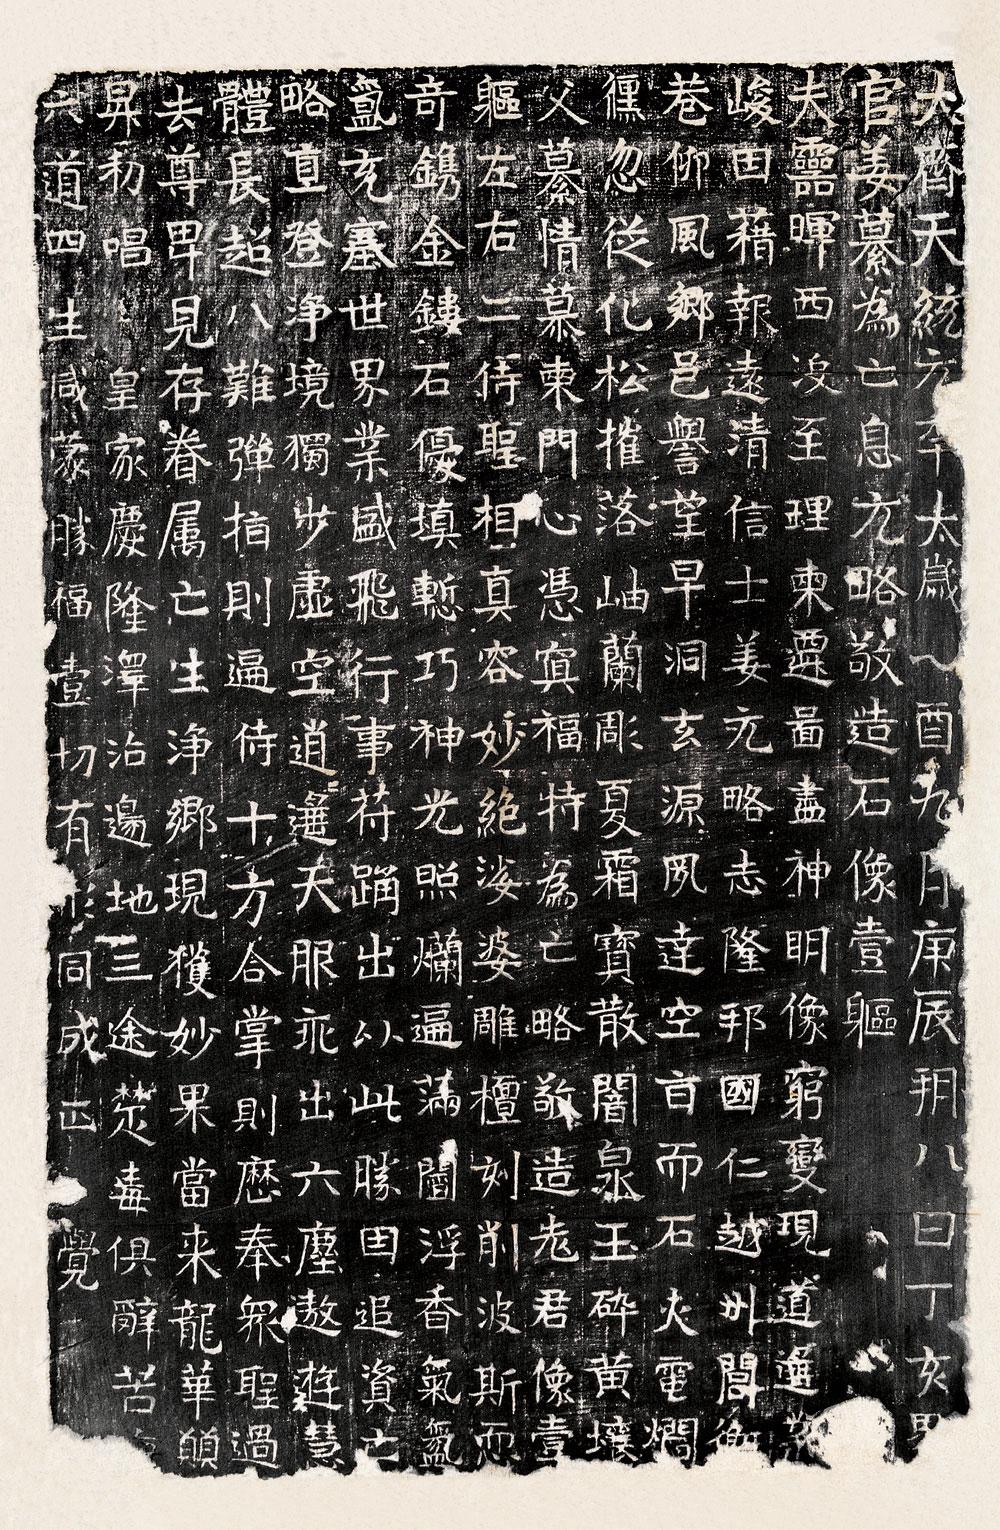 大齊天統元年太歲乙酉九月庚辰朔八日丁亥
官姜纂為亡息元略敬造石像壹軀
夫靈暉西沒至理東遷啚盡神明像窮變現道遍
峻因藉報遠清信士姜元略志隆邦國仁越州閭
巷仰風鄉邑譽望早洞玄源夙達空旨而石火電燗
儵忽從化松摧落岫蘭彫夏霜寶散闇泉玉碎黄壤
父纂情慕東門心憑寘福特為亡略敬造老君像壹
軀左右二侍聖相真容妙絕娑婆雕檀刻削波斯而
奇鐫金鏤石優填慙巧神光照爛遍滿閻浮香氣氳
氳充塞世界業盛飛行事苻踊出以此勝因追資亡
略直登浄境獨步虛空逍遙天服乖出六塵遨遊慧
體長超八難彈指則遍侍十方合掌則歷奉衆聖過
去尊卑見存眷属亡生浄鄉現獲妙果當来龍華願
昇初唱皇家慶隆澤洽邊地三途楚毒俱辭苦
六道四生咸蒙勝福壹切有形同成正覺